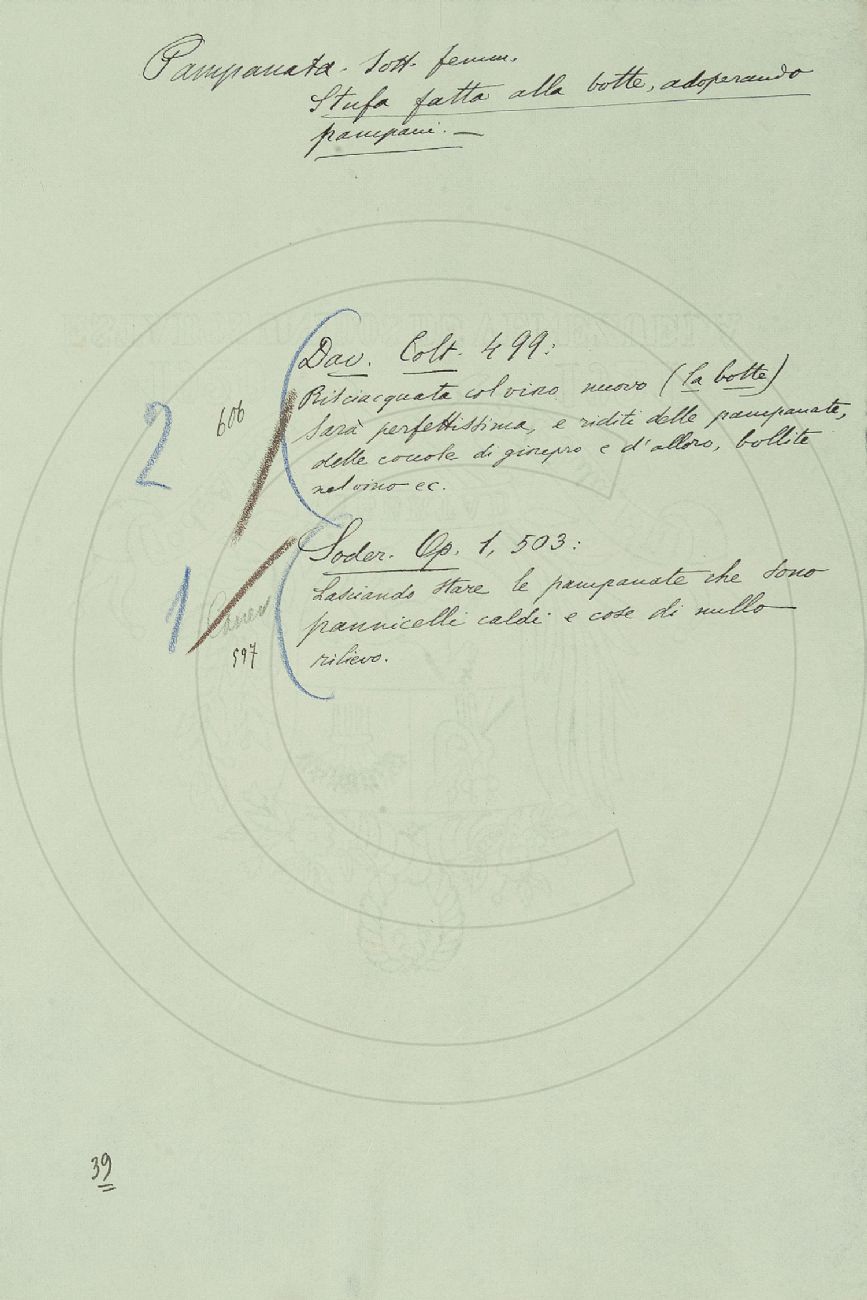 Pampanata. Sost. femm.
Stufa fatta alla botte, adoperando
pampani. —
Dav. Colt. 499:
Risciacquata col vino nuovo (la botte)
sarà perfettissima, e riditi delle pampanate,
delle coccole di ginepro e d'alloro, bollite
nel vino ec.
606
2
Soder. Op. 1, 503:
Lasciando stare le pampanate che sono
pannicelli caldi e cose di nullo
rilievo.
1
597
39